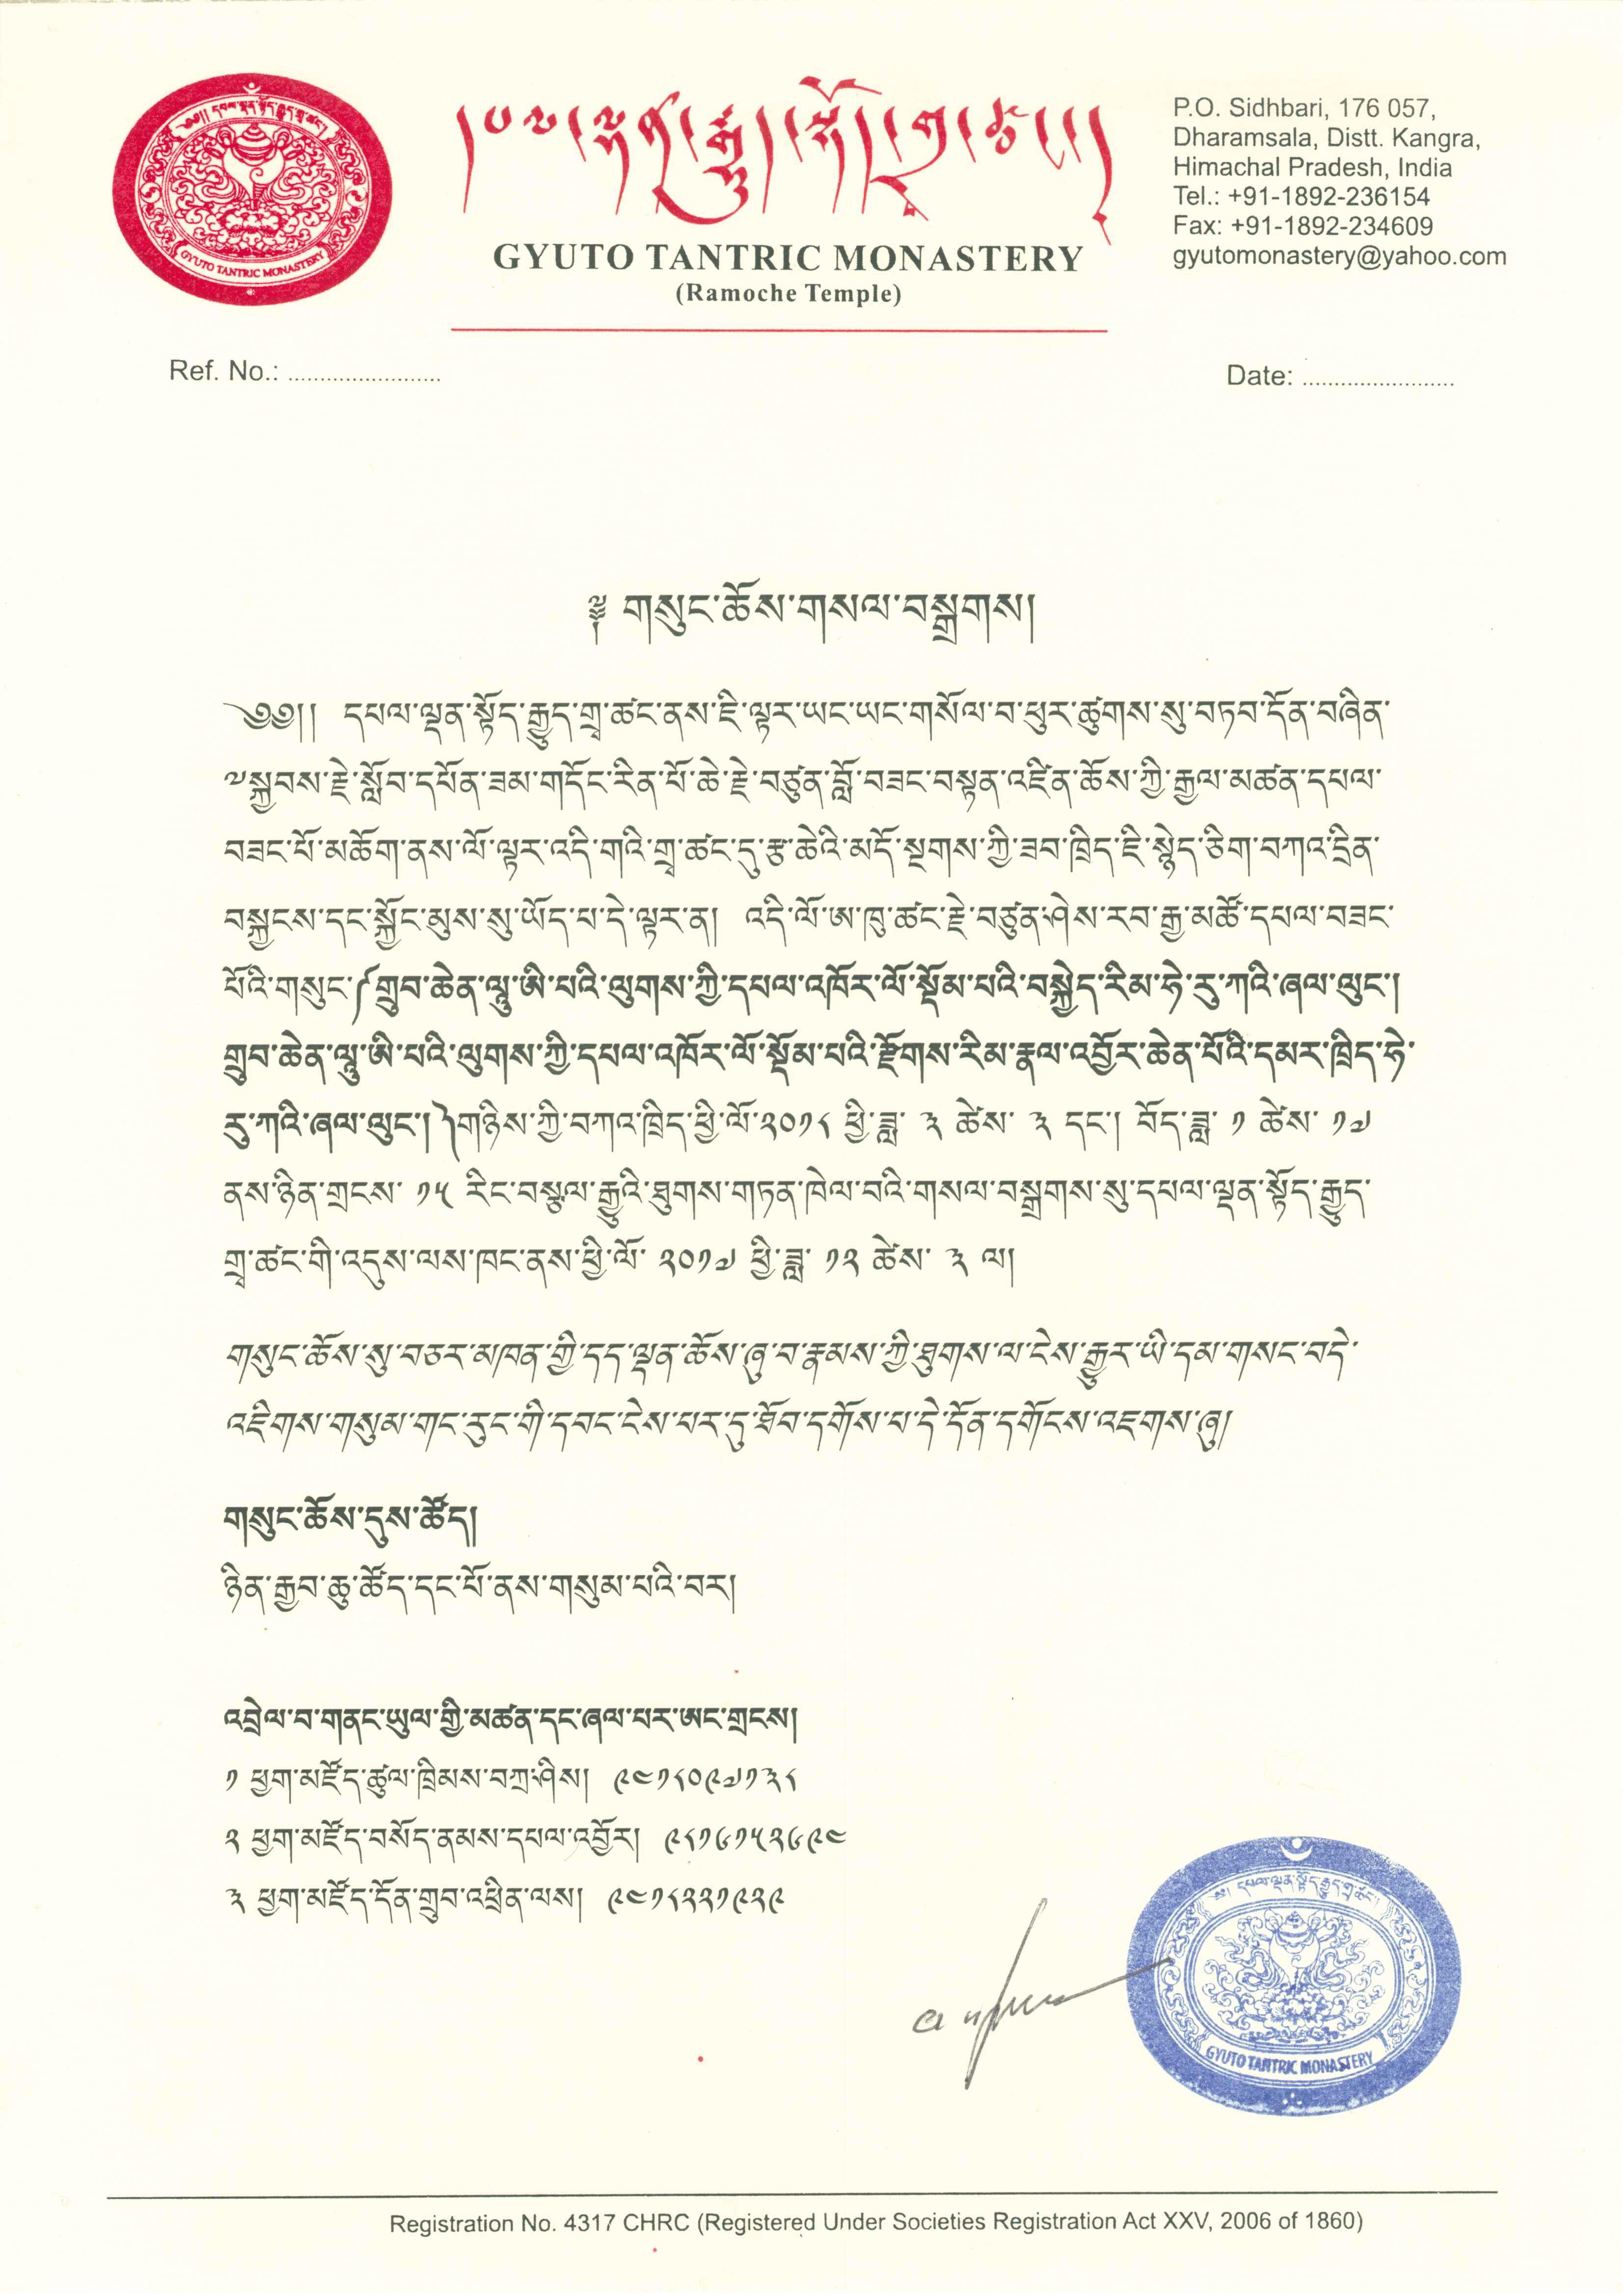 ༄༅།། དཔལ་ལྡན་སྟོད་རྒྱུད་གྲྭ་ཚང།
GYUTO TANTRIC MONASTERY
།དཔལ་ལྡན་རྒྱུད་སྟོད་གྲྭ་ཚང་།།
GYUTO TANTRIC MONASTERY
(Ramoche Temple)
P.O. Sidhbari, 176 057,
Dharamsala, Distt. Kangra,
Himachal Pradesh, India
Tel.: +91-1892-236154
Fax: +91-1892-234609
gyutomonastery@yahoo.com
Ref. No.: ........................
Date: ........................
༈ གསུང་ཆོས་གསལ་བསྒྲགས།
༄༅།། དཔལ་ལྡན་སྟོད་རྒྱུད་གྲྭ་ཚང་ནས་ཇི་ལྟར་ཡང་ཡང་གསོལ་བ་ཕུར་ཚུགས་སུ་བཏབ་དོན་བཞིན་
༧སྐྱབས་རྗེ་སློབ་དཔོན་ཟམ་གདོང་རིན་པོ་ཆེ་རྗེ་བཙུན་བློ་བཟང་བསྟན་འཛིན་ཆོས་ཀྱི་རྒྱལ་མཚན་དཔལ་
བཟང་པོ་མཆོག་ནས་ལོ་ལྟར་འདི་གའི་གྲྭ་ཚང་དུ་རྩ་ཆེའི་མདོ་སྔགས་ཀྱི་ཟབ་ཁྲིད་ཇི་སྙེད་ཅིག་བཀའ་དྲིན་
བསྐྱངས་དང་སྐྱོང་མུས་སུ་ཡོད་པ་དེ་ལྟར་ན། འདི་ལོ་ཨ་ཁུ་ཚང་རྗེ་བཙུན་ཤེས་རབ་རྒྱ་མཚོ་དཔལ་བཟང་
པོའི་གསུང་༼གྲུབ་ཆེན་ལཱུ་ཨི་པའི་ལུགས་ཀྱི་དཔལ་འཁོར་ལོ་སྡོམ་པའི་བསྐྱེད་རིམ་ཧེ་རུ་ཀའི་ཞལ་ལུང་།
གྲུབ་ཆེན་ལཱུ་ཨི་པའི་ལུགས་ཀྱི་དཔལ་འཁོར་ལོ་སྡོམ་པའི་རྫོགས་རིམ་རྣལ་འབྱོར་ཆེན་པོའི་དམར་ཁྲིད་ཧེ་
རུ་ཀའི་ཞལ་ལུང་།༽གཉིས་ཀྱི་བཀའ་ཁྲིད་ཕྱི་ལོ་༢༠༡༨ ཕྱི་ཟླ་ ༣ ཚེས་ ༣ དང་། བོད་ཟླ་ ༡ ཚེས་ ༡༧
ནས་ཉིན་གྲངས་ ༡༥ རིང་བསྩལ་རྒྱུའི་ཐུགས་གཏན་ཁེལ་བའི་གསལ་བསྒྲགས་སུ་དཔལ་ལྡན་སྟོད་རྒྱུད་
གྲྭ་ཚང་གི་འདུས་ལས་ཁང་ནས་ཕྱི་ལོ་ ༢༠༡༧ ཕྱི་ཟླ་ ༡༢ ཚེས་ ༣ ལ།
གསུང་ཆོས་སུ་བཅར་མཁན་གྱི་དད་ལྡན་ཆོས་ཞུ་བ་རྣམས་ཀྱི་ཐུགས་ལ་ངེས་རྒྱུར་ཡི་དམ་གསང་བདེ་
འཇིགས་གསུམ་གང་རུང་གི་དབང་ངེས་པར་དུ་ཐོབ་དགོས་པ་དེ་དོན་དགོངས་འཇགས་ཞུ།
གསུང་ཆོས་དུས་ཚོད།
ཉིན་རྒྱབ་ཆུ་ཚོད་དང་པོ་ནས་གསུམ་པའི་བར།
འབྲེལ་བ་གནང་ཡུལ་གྱི་མཚན་དང་ཞལ་པར་ཨང་གྲངས།
༡ ཕྱག་མཛོད་ཚུལ་ཁྲིམས་བཀྲ་ཤིས། ༩༤༡༨༠༩༧༡༣༨
༢ ཕྱག་མཛོད་བསོད་ནམས་དཔལ་འབྱོར། ༩༨༡༦༡༥༢༦༩༤
༣ ཕྱག་མཛོད་དོན་གྲུབ་འཕྲིན་ལས། ༩༤༡༨༢༢༡༩༢༩
དཔལ་ལྡན་སྟོད་རྒྱུད་གྲྭ་ཚང་།
GYUTO TANTRIC MONASTERY
Registration No. 4317 CHRC (Registered Under Societies Registration Act XXV, 2006 of 1860)